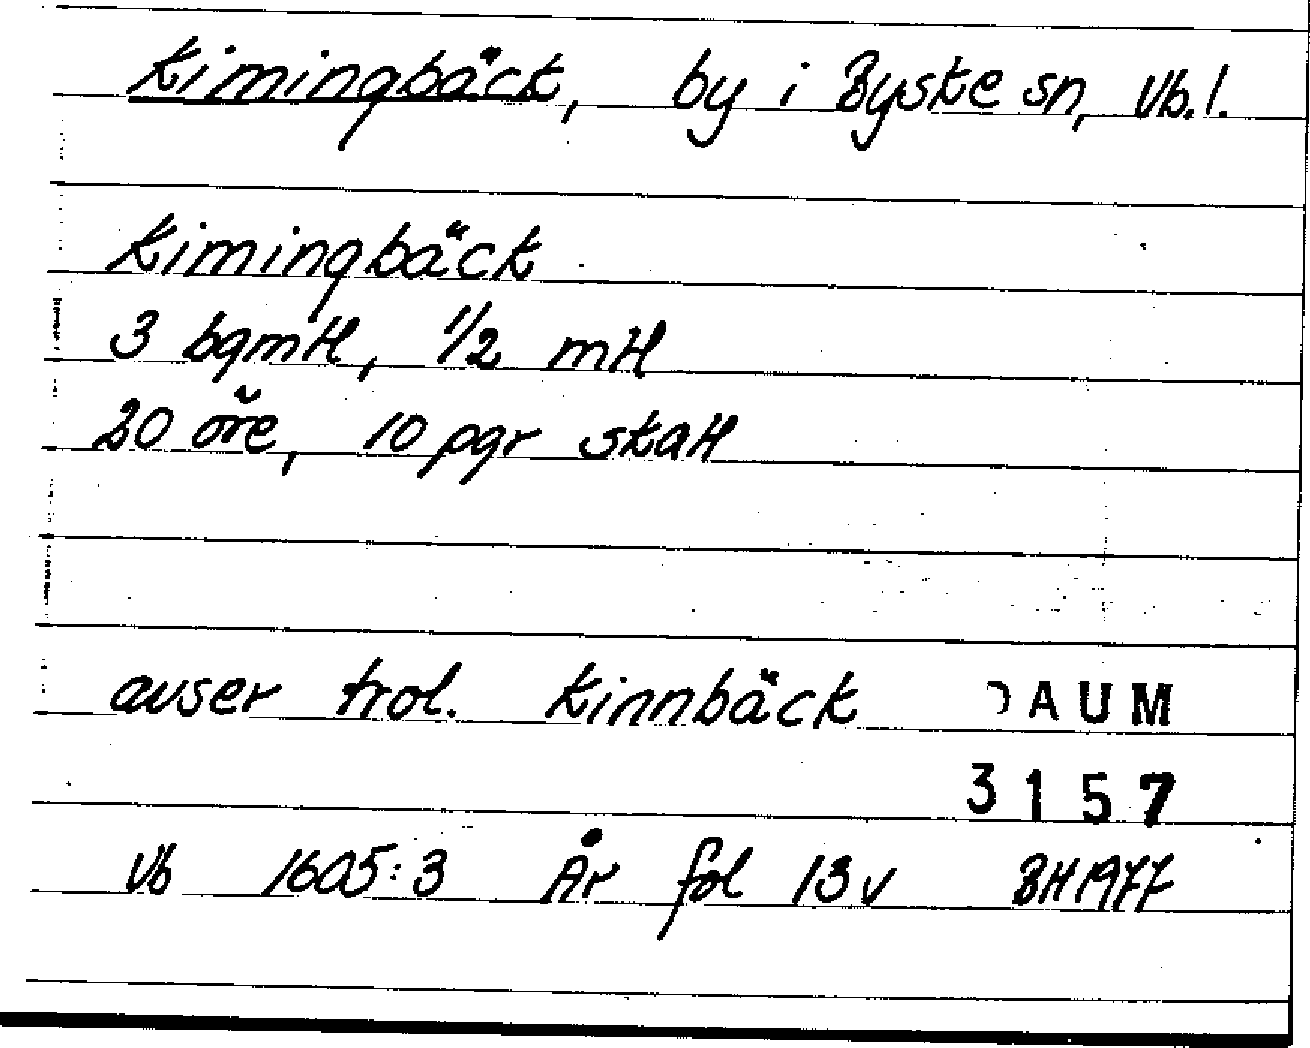 Kimingbäck, by i Byske sn, Vb. l.
Kimingbäck
3 bgmtl, 1/2 mtl
20 öre, 10 pgr skatt
avser trol. Kinnbäck DAUM
3157
Vb 1605:3 Är fol 13 v BH 1977